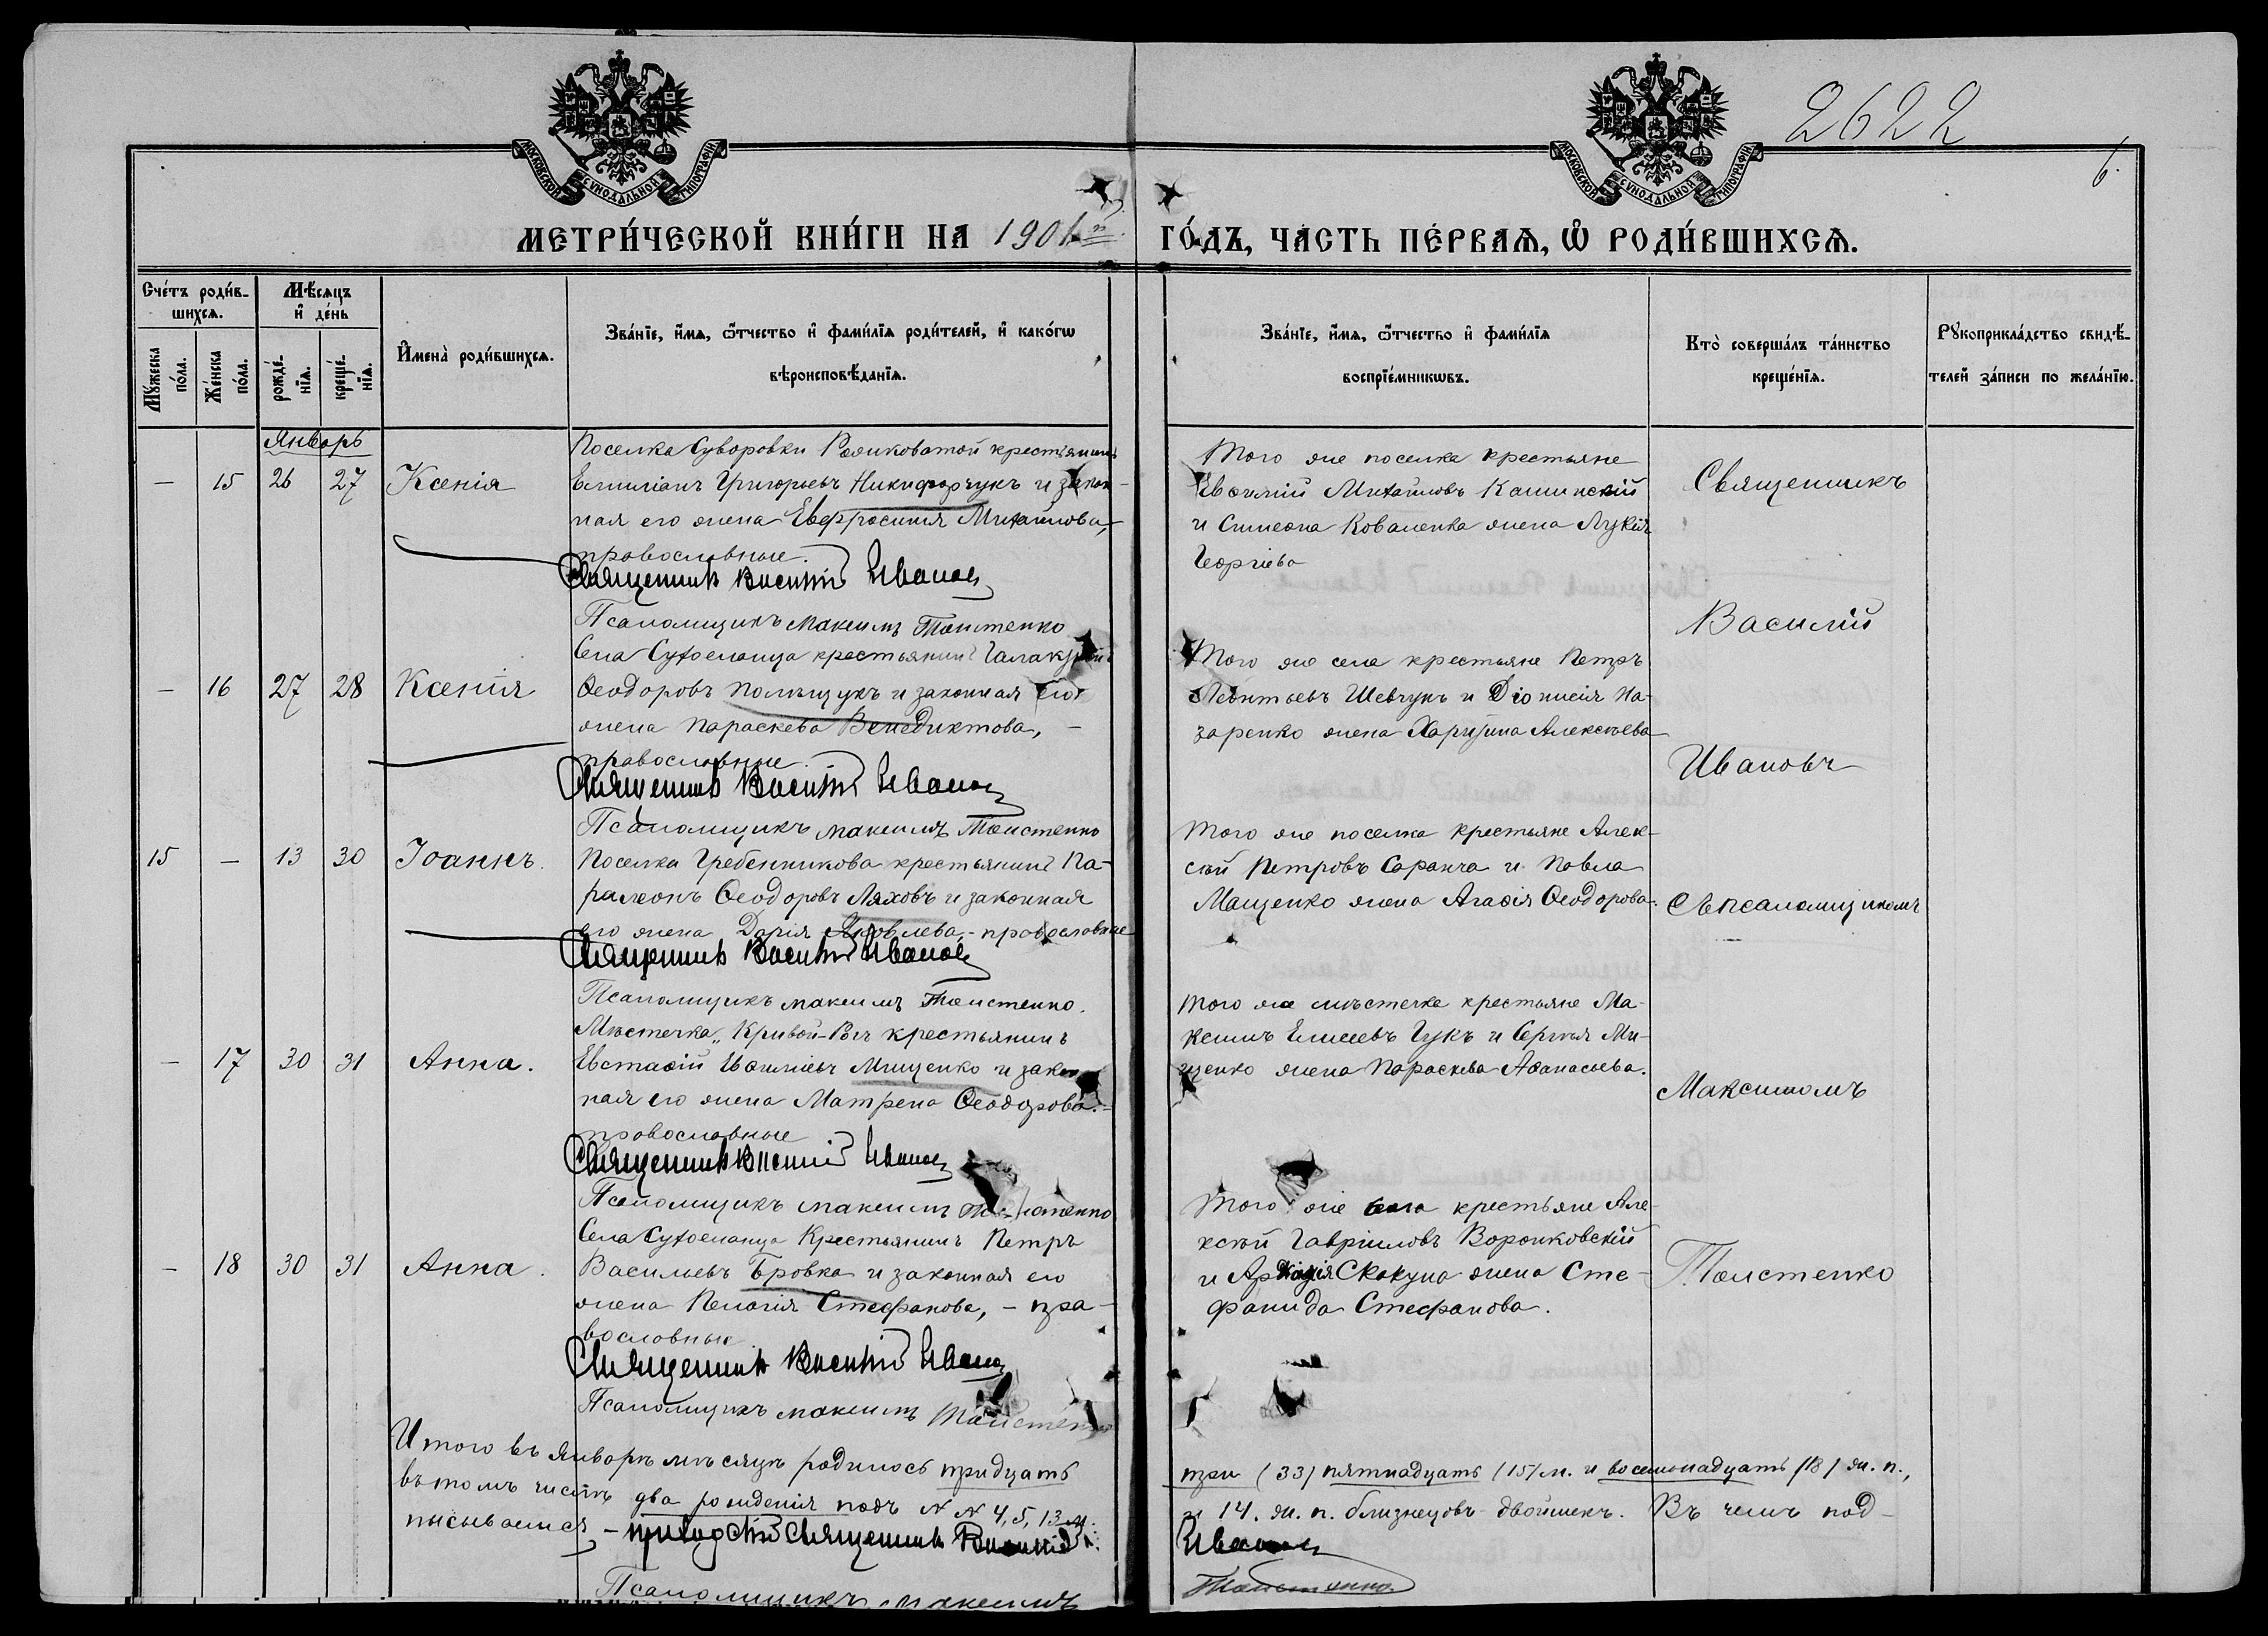 МОСКОВСКОЙ СѴНОДАЛЬНОЙ ТИПОГРАФІИ
МОСКОВСКОЙ СѴНОДАЛЬНОЙ ТИПОГРАФІИ
2622
6.
МЕТРИ́ЧЕСКОЙ КНИ́ГИ НА 1901й
ГО́ДЪ, ЧАСТЬ ПЕ́РВАѦ, Ѡ҆ РОДИ́ВШИХСѦ.
Сче́тъ роди́в-
шихсѧ.
Мѣ́сѧцъ
и҆ де́нь
Мꙋ́жеска по́ла.
Же́нска по́ла.
рожде́-
нїѧ.
креще́-
нїѧ.
И҆мена̀ роди́вшихсѧ.
Зва́нїе, и҆́мѧ, ѻ҆́тчество и҆ фами́лїѧ роди́телей, и҆ како́гѡ
вѣроисповѣ́данїѧ.
Зва́нїе, и҆́мѧ, ѻ҆́тчество и҆ фами́лїѧ
воспрїе́мникѡвъ.
Кто̀ соверша́лъ та́инство
креще́нїѧ.
Рꙋкоприкла́дство свидѣ́-
телей за́писи по жела́нїю.
Январь
— 15 26 27 Ксенія
Поселка Суворовки крестьянинъ
Емиліанъ Григорьевъ Никифорчукъ и закон-
ная его жена Евфросинія Михаилова,
православные.
Священникъ Василій Ивановъ
Псаломщикъ Максимъ Толстенко
Того же поселка крестьяне
Евфимій Михаиловъ Кашинскій
и Симеона Коваленка жена Лукія
Георгіева
— 16 27 28 Ксенія
Села Сухоеланца крестьянинъ
Ѳеодоровъ и законная его
жена Параскева Венедиктова, —
православные.
Священникъ Василій Ивановъ
Псаломщикъ Максимъ Толстенко
Того же села крестьяне Петръ
Леонтьевъ Шевчукъ и Діонисія На-
заренко жена Харитина Алексѣева
15 — 13 30 Іоаннъ.
Поселка Гребенникова крестьянинъ Па-
рамонъ Ѳеодоровъ Ляховъ и законная
его жена Дарія Яковлева, - православные
Священникъ Василій Ивановъ
Псаломщикъ Максимъ Толстенко.
Того же поселка крестьяне Алек-
сѣй Петровъ Саранча и Павла
Мащенко жена Агаѳія Ѳеодорова.
— 17 30 31 Анна.
Мѣстечка „Кривой-Рогъ крестьянинъ
Евстаѳій Мищенко и закон-
ная его жена Матрена Ѳеодорова. -
православные
Священникъ Василій Ивановъ
Псаломщикъ Максимъ Толстенко
Того же мѣстечка крестьяне Ма-
ксимъ Елисеевъ Гукъ и Сергѣя Ми-
щенко жена Параскева Аѳанасьева.
— 18 30 31 Анна.
Села Сухоеланца Крестьянинъ Петръ
Васильевъ Бровка и законная его
жена Пелагія Стефанова, — пра-
вославные
Священникъ Василій Ивановъ
Псаломщикъ Максимъ Толстенко
Того же села крестьяне Але-
ксѣй Гавріиловъ Воронковскій
и Аркадія Скакуна жена Сте-
фанида Стефанова.
Священникъ
Василій
Ивановъ
съ псаломщикомъ
Максимомъ
Толстенко
Итого въ Январѣ мѣсяцѣ родилось тридцать
три (33) пятнадцать (15) м. и восемнадцать (18) ж. п.,
въ томъ числѣ два рожденія подъ № № 4, 5, 13 м.
и 14. ж. п. близнецовъ двойшекъ. Въ чемъ под-
писываемся, — приходскій Священникъ Василій
Ивановъ
Псаломщикъ Максимъ
Толстенко